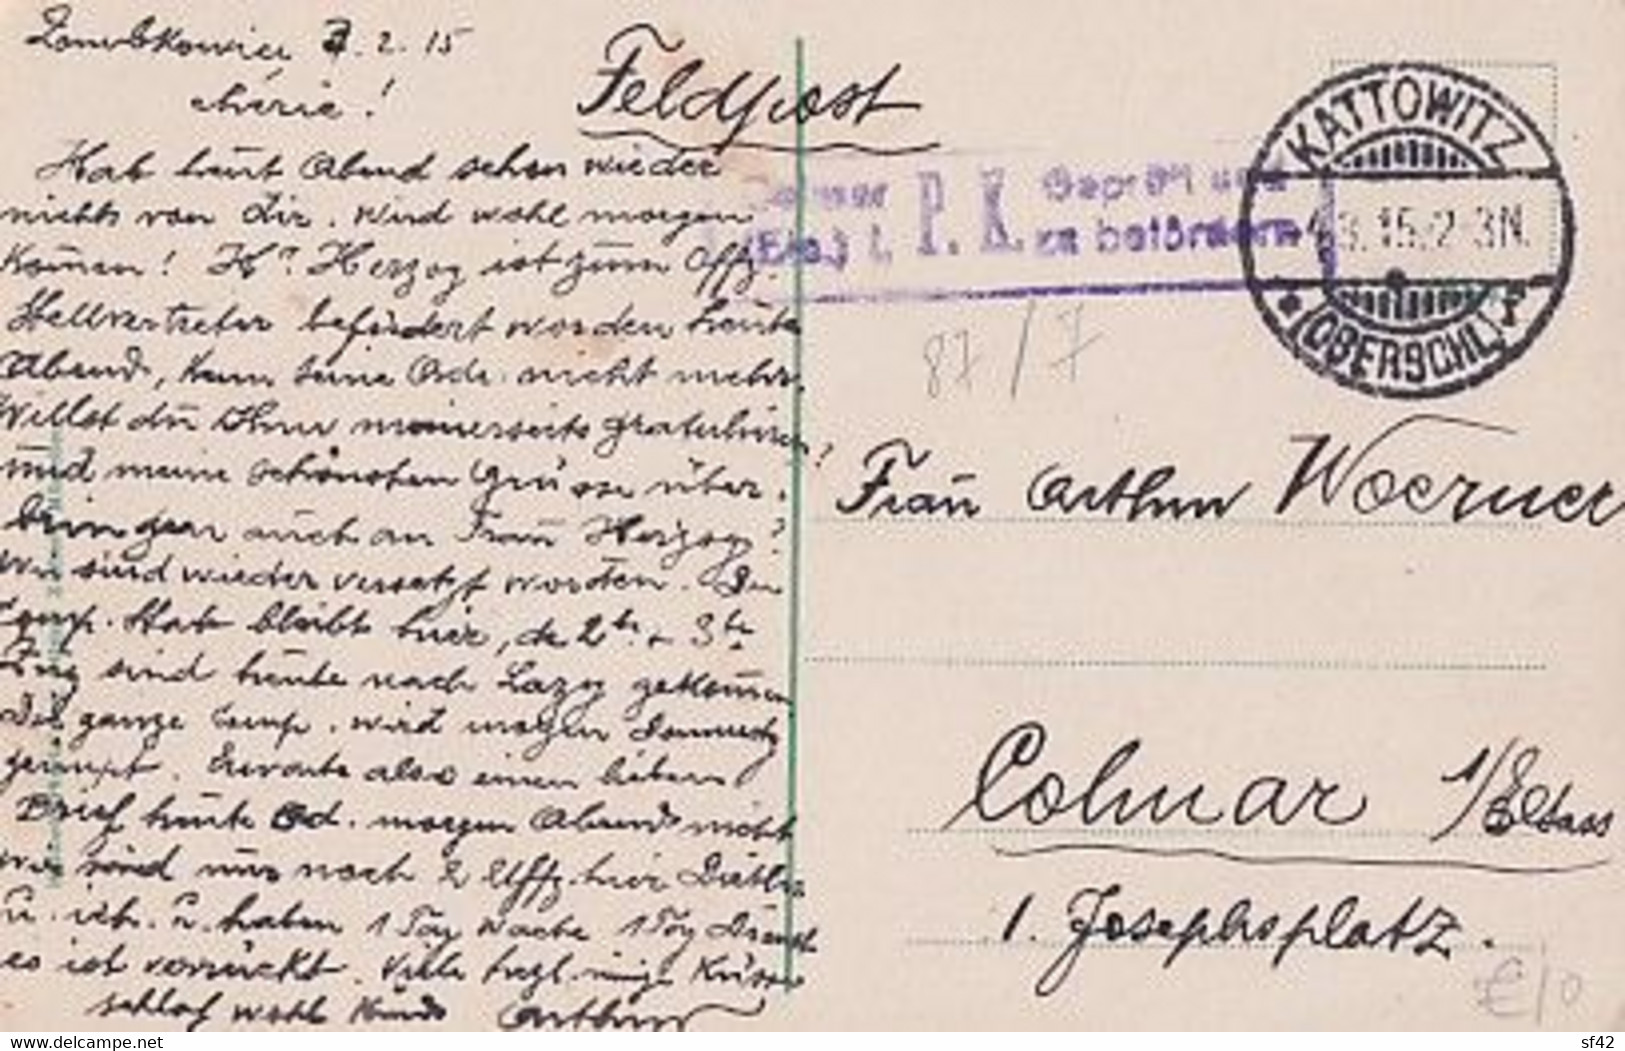 2.15
chérie!
Feldpost
Hab heut Abend schon wieder
nichts von Dir. Wird wohl morgen
Kom̄en! Hr. Herzog ist zum Offz.
stellvertreter befördert worden heute
Abend, kann seine nicht mehr
Willst du Ihnen meinerseits gratulieren
und meine schönsten Grüsse über-
bringen auch an Frau Herzog?
Wir sind wieder versetzt worden. Die
Comp. Stab bleibt hier, de 2te + 3te
Zug sind heute nach Lazy gekom̄en
Die ganze Comp. wird morgen
geimpft. Erwarte also einen lieben
Brief heute od. morgen Abend nicht
wir sind nur noch 2 Uffz. hier
u. ich. u. haben 1 Tag Wache 1 Tag Dienst
es ist verrückt. Viele herzl. Küsse
schlaf wohl Arthur
Colmar
(Els.) P. K. Geprüft und
zu befördern
KATTOWITZ
15.2 3N.
* (OBERSCHL.) f
87/7
Frau Arthur Woerner
Colmar i/Elsass
1. Josephsplatz.
€10
delcampe.net
sf42